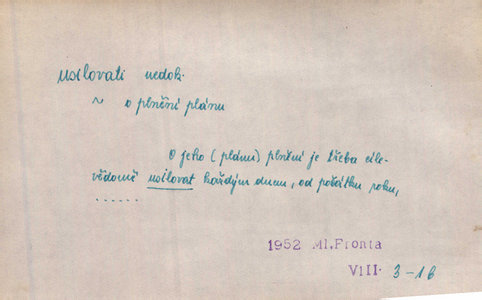 usilovati nedok.
~ o plnění plánu
O jeho (plánu) plnění je třeba cíle-
vědomě usilovat každým dnem, od počátku roku,
......
1952 Ml.Fronta
VIII. 3-16